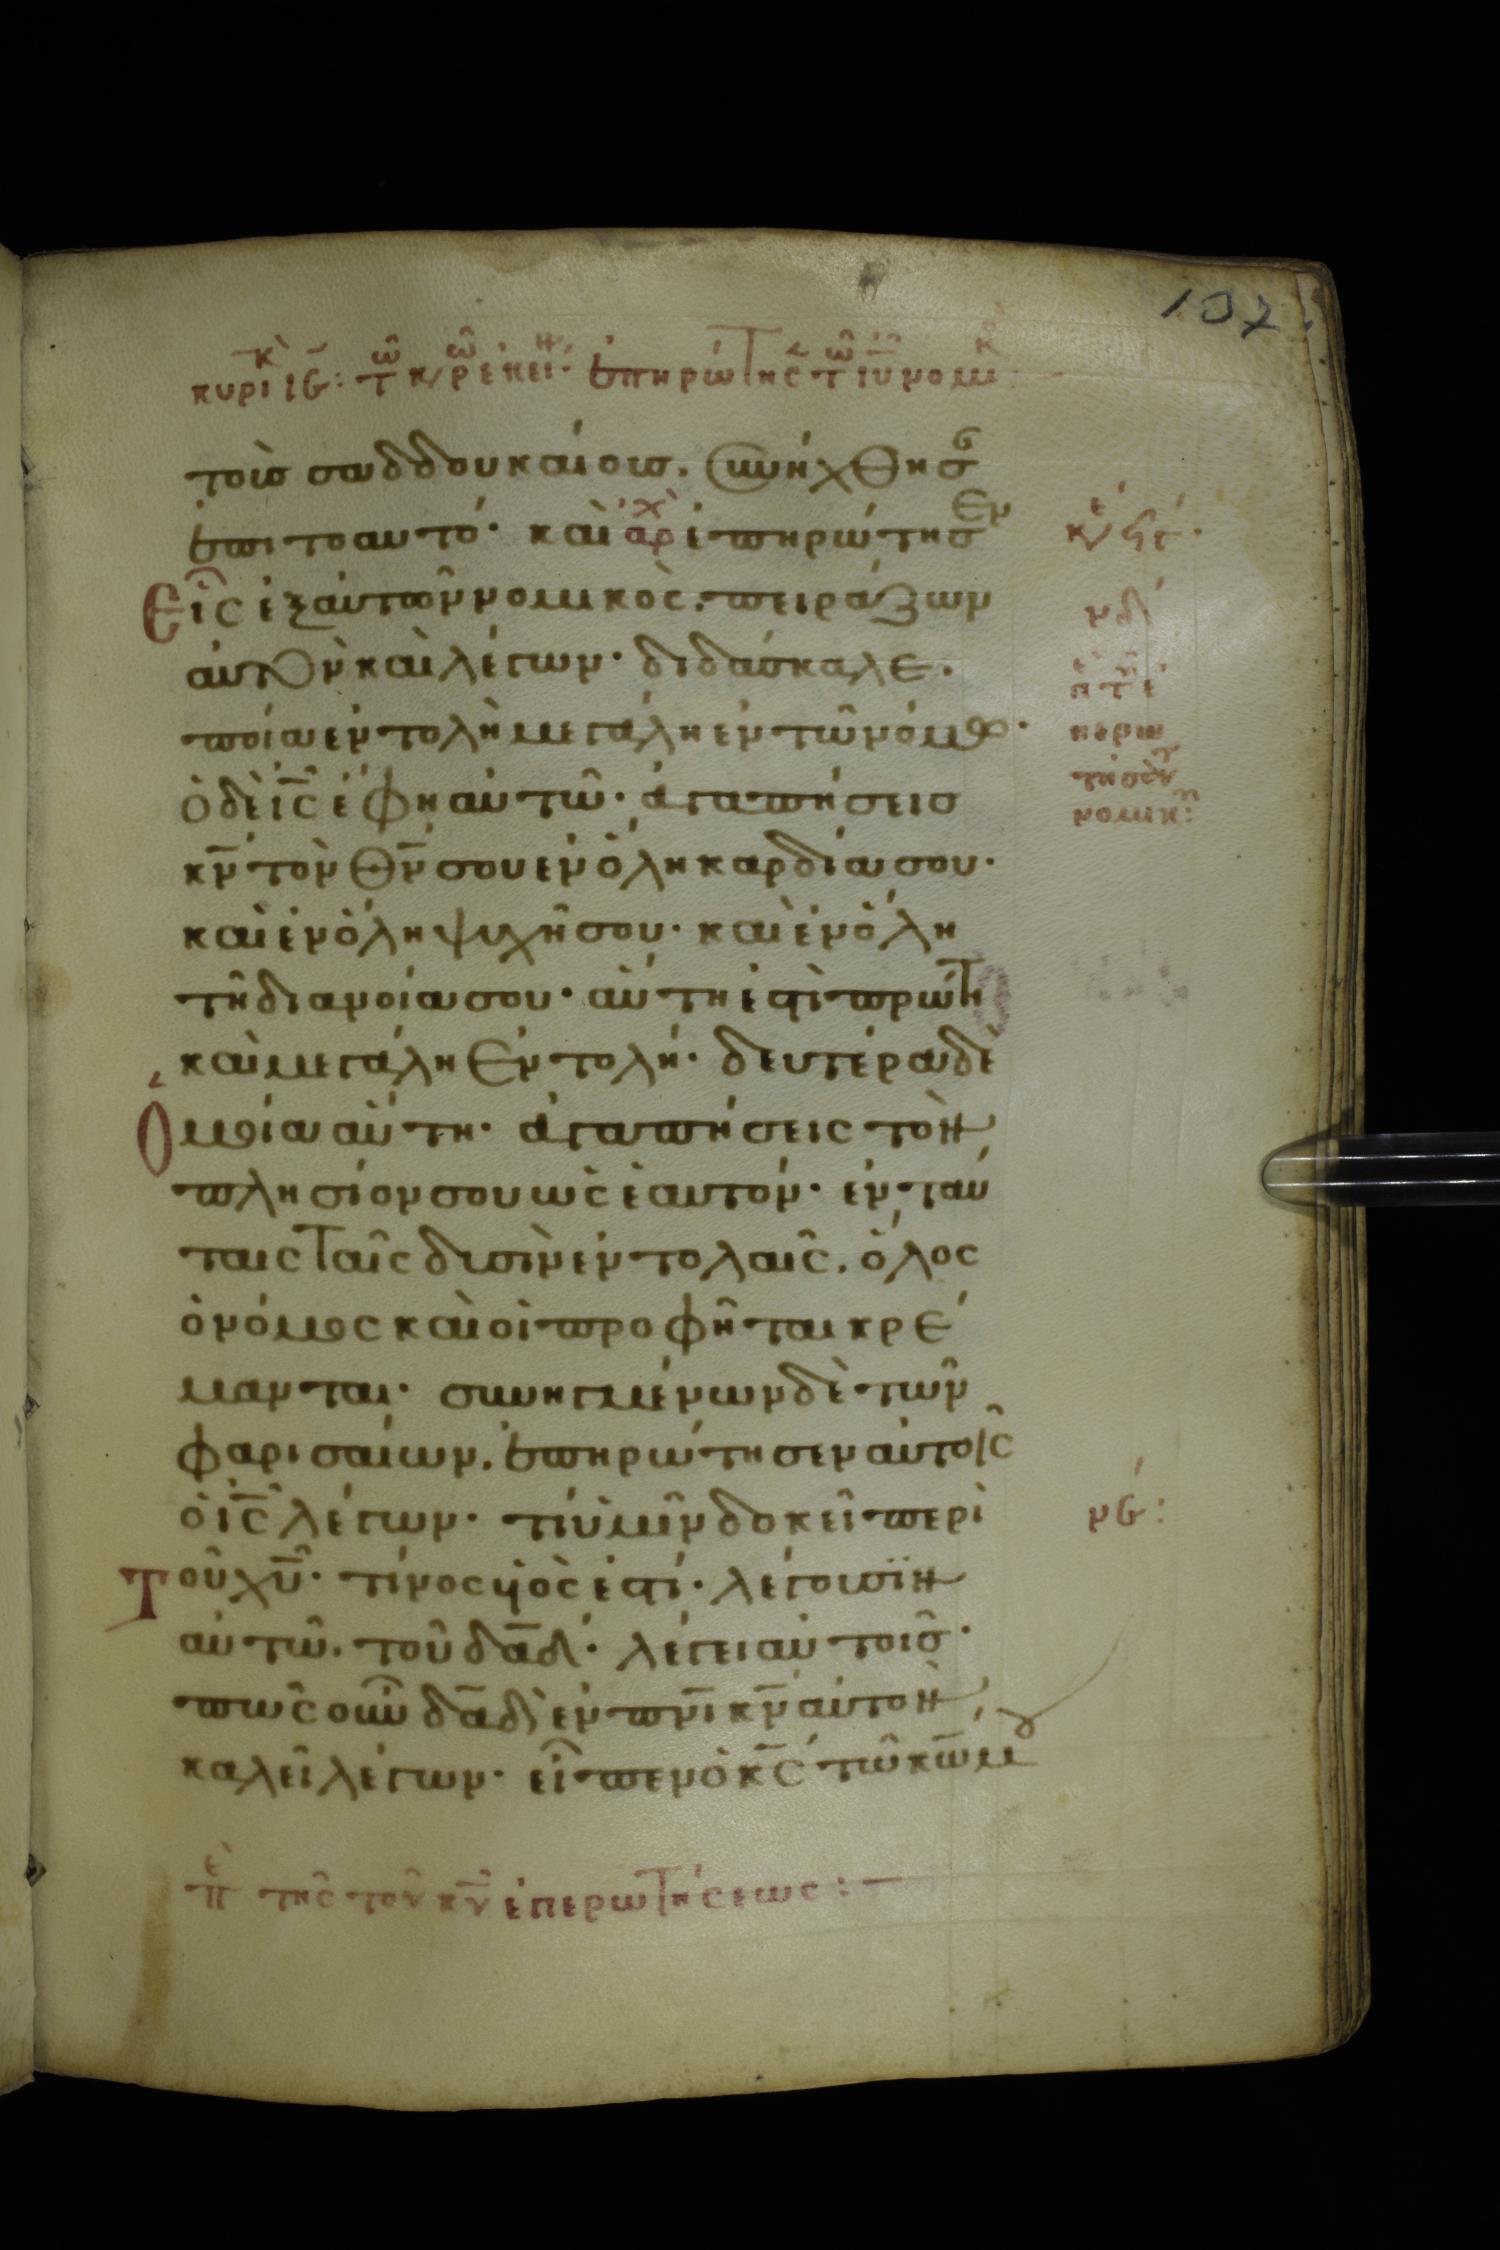 107
τοῖς σαδδουκαίοις. συνήχθησ
ἐπιτοαυτό· καὶ ἀρχ ἐπηρώτησεν
εἷς ἐξαυτῶν νομικὸς. πειράζων
αὐτὸν καὶ λέγων· διδάσκαλε.
ποία ἐντολὴ μεγάλη ἐν τῶ νόμω·
ὁ δὲ ις ἔφη αὐτῶ· ἀγαπήσεις
κν τὸν θν σου ἐν ὅλη καρδία σου·
καὶ ἐν ὅλη ψυχῆ σου· καὶ ἐν ὅλη
τῆ διανοία σου· αὕτη ἐστὶ πρώτη
καὶ μεγάλη ἐντολή· δευτέρα δὲ
ὁμοία αὕτη· ἀγαπήσεις τὸν
πλησίον σου ὡς ἑαυτόν· ἐν ταύ
ταις ταῖς δυσὶν ἐντολαῖς. ὅλος
ὁ νόμος καὶ οἱ προφῆται κρέ
μανται· συνηγμένων δὲ τῶν
φαρισαίων. ἐπηρώτησεν αὐτοῖς
ὁ ις λέγων· τί ὑμῖν δοκεῖ περὶ
νϛ:
τοῦ χυ· τίνος υἱός ἐστι· λέγουσιν
αὐτῶ. τοῦ δαδ· λέγει αὐτοῖς·
πῶς οὖν δαδ ἐν πνι κν αὐτὸν
καλεῖ λέγων· εἶπεν ὁ κς τῶ κω μου
τῆς τοῦ κυ ἐπερωτήσεως: